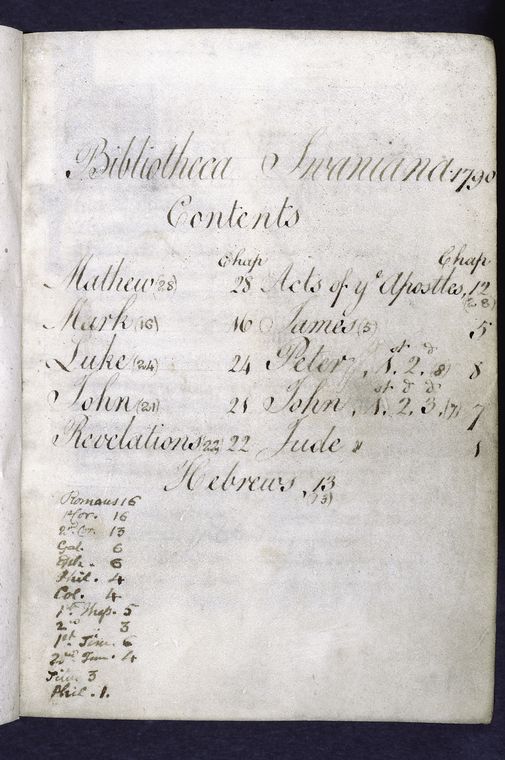 Bibliotheca Swaniana 1790
Contents
Chap Chap
Mathew (28) 28 Acts of yᵉ Apostles, 12
(28)
Mark (16) 16 James (5) 5
Luke (24) 24 Peter, 1ˢᵗ 2ᵈ (8) 8
John (21) 21 John, 1ˢᵗ 2ᵈ 3ᵈ (7) 7
Revelations (22) 22 Jude " 1
Hebrews, 13
(13)
Romans 16
1ˢᵗ Cor. 16
2ᵈ Cor. 13
Gal. 6
Eph. 6
Phil. 4
Col. 4
1ˢᵗ Thes. 5
2ⁿᵈ 3
1ˢᵗ Tim. 6
2ⁿᵈ Tim. 4
Titus 3
Phil. 1.